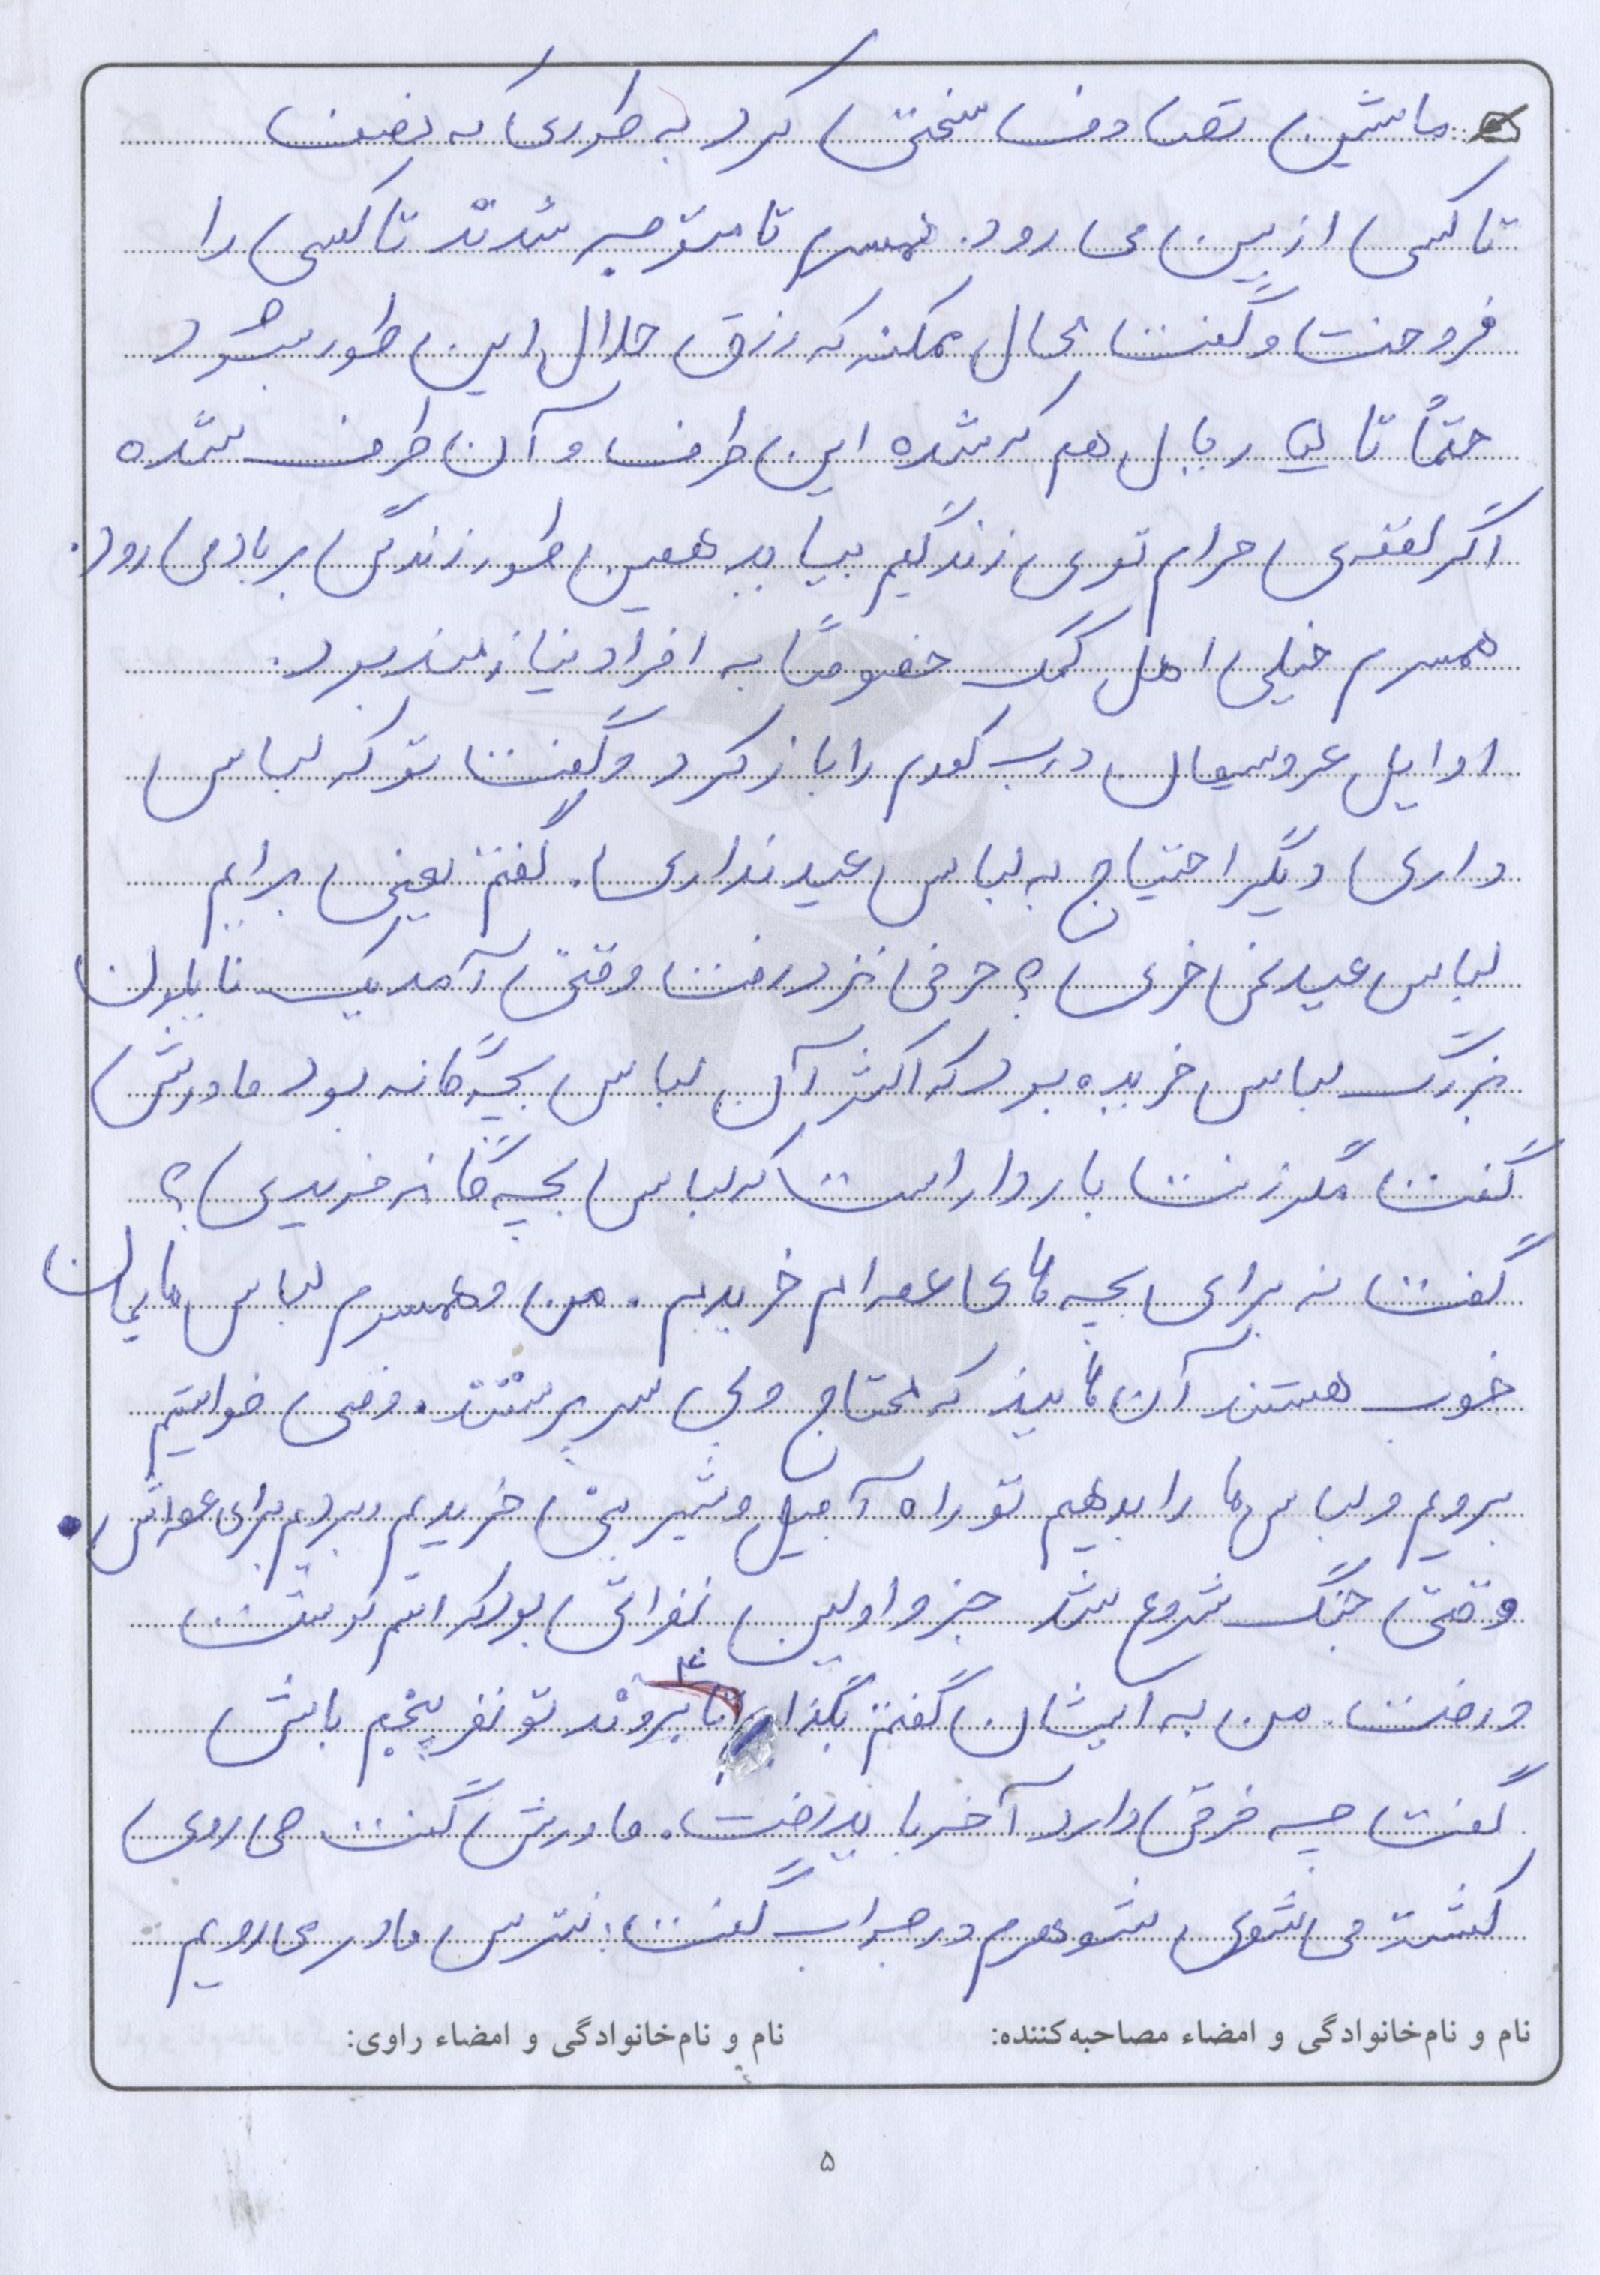 ماشین تصادف سختی کرد به طوری که نصف
تاکسی از بین می رود. همسرم تا متوجه شدند تاکسی را
فروخت و گفت محال ممکنه که رزق حلال این طور بشود
حتماً تا یک ریال هم که شده این طرف و آن طرف شده
اگر لقمه ی حرام توی زندگیم بیاید همین طور زندگی بر باد می رود.
همسرم خیلی اهل کمک خصوصاً به افراد نیازمند بود.
اوایل عروسیمان درب کمدم را باز کرد و گفت تو که لباس
داری دیگر احتیاج به لباس عید نداری. گفتم یعنی برایم
لباس عید نمی خری؟ حرفی نزد رفت وقتی آمد یک نایلون
بزرگ لباس خریده بود که اکثر آن لباس بچّه گانه بود مادرش
گفت مگر زنت باردار است که لباس بچّه گانه خریدی؟
گفت نه برای بچه های عمه ام خریدم. من و همسرم لباس هایمان
خوب هستند آن هایند که محتاج و بی سرپرستند. ومی خواستیم
برویم و لباس ها را بدهیم تو راه آجیل و شیرینی خریدیم بردیم برای عمه اش.
وقتی جنگ شروع شد جزو اولین نفراتی بود که اسم نوشت
و رفت. من به ایشان گفتم بگذار ۴ تا بروند تو نفر پنجم باش
گفت چه فرقی دارد آخر باید رفت. مادرش گفت می روی
کشته می شوی شوهرم در جواب گفت: نترس مادر می رویم
نام و نام‌خانوادگی و امضاء مصاحبه‌کننده: نام و نام‌خانوادگی و امضاء راوی:
۵